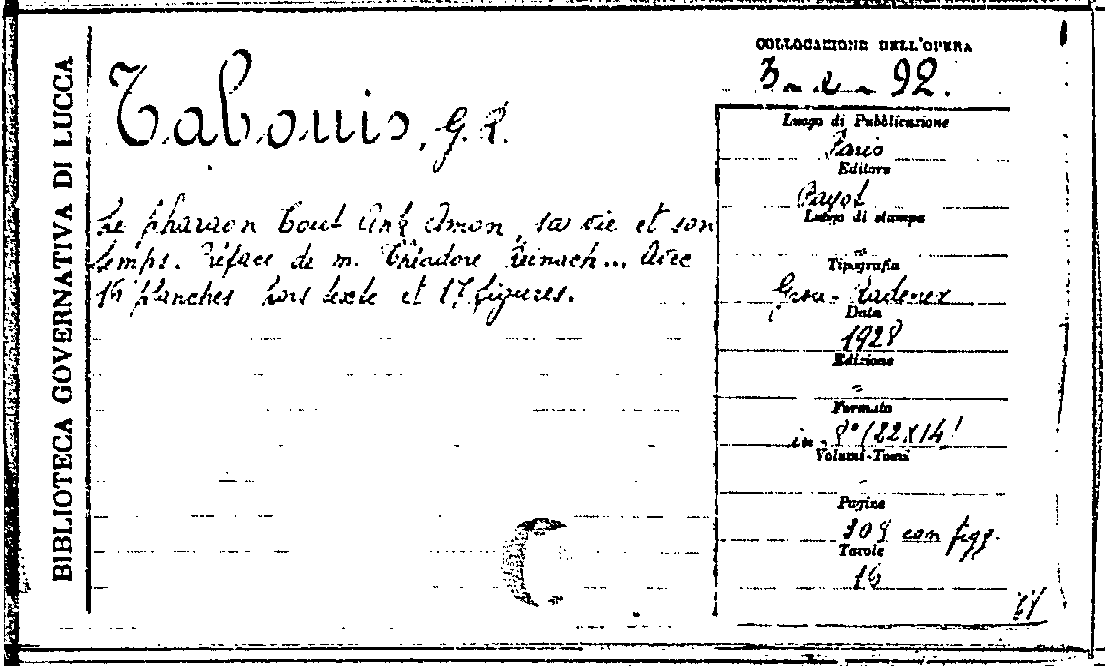 BIBLIOTECA GOVERNATIVA DI LUCCA
Tabouis, G. R.
Le pharaon Tout Ank Amon, sa vie et son
temps. Préface de m. Théodore Reinach... Avec
16 planches hors texte et 17 figures.
COLLOCAZIONE DELL'OPERA
92.
Luogo di Pubblicazione
Paris
Editore
Payot
Luogo di stampa
Tipografia
Data
1928
Edizione
Formato
in-8° (22x14)
Volumi-Tomi
Pagine
con figg.
Tavole
16